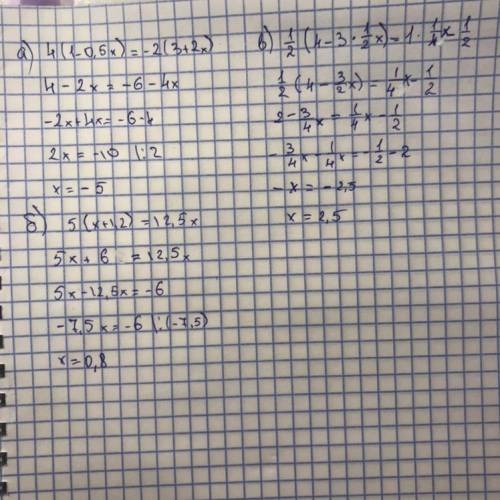 а) 4(1-0,5x)=-2(3+2x)
4-2x=-6-4x
-2x+4x=-6-4
2x=-10 |:2
x=-5
б) 5(x+1,2)=12,5x
5x+6=12,5x
5x-12,5x=-6
-7,5x=-6 |:(-7,5)
x=0,8
в) 1/2(4-3·1 1/2x)=1·1/4x-1/2
1/2(4-3/2x)=1/4x-1/2
2-3/4x=1/4x-1/2
-3/4x-1/4x=-1/2-2
-x=-2,5
x=2,5